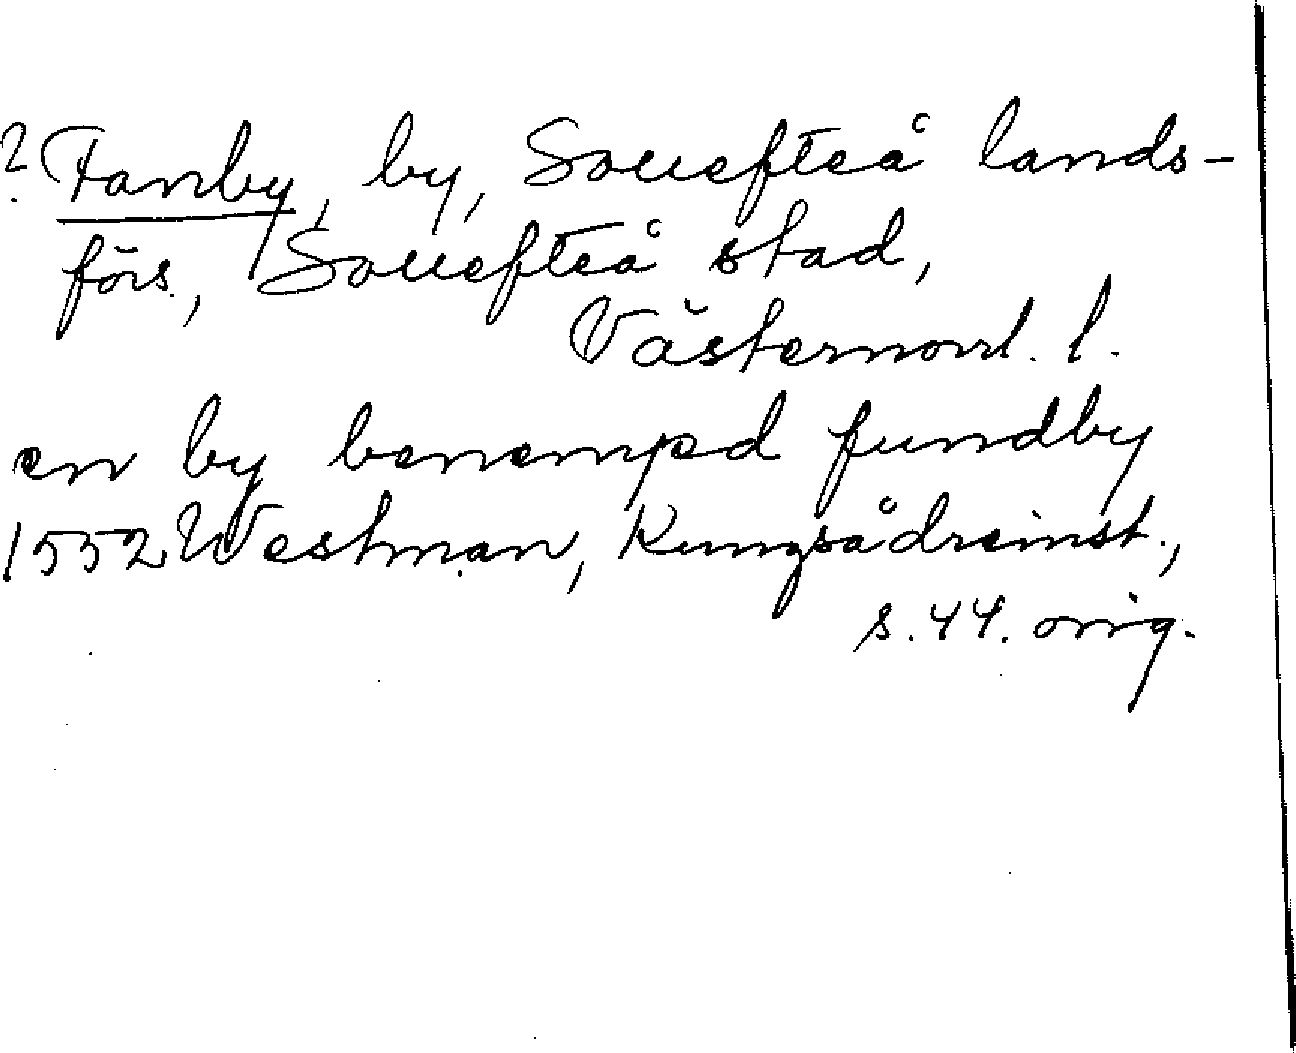 ? Fanby, by, Sollefteå lands-
förs., Sollefteå stad,
Västernorrl. l.
en by benempd fundby
1552 Westman, Kungsådreinst.,
s. 44. orig.